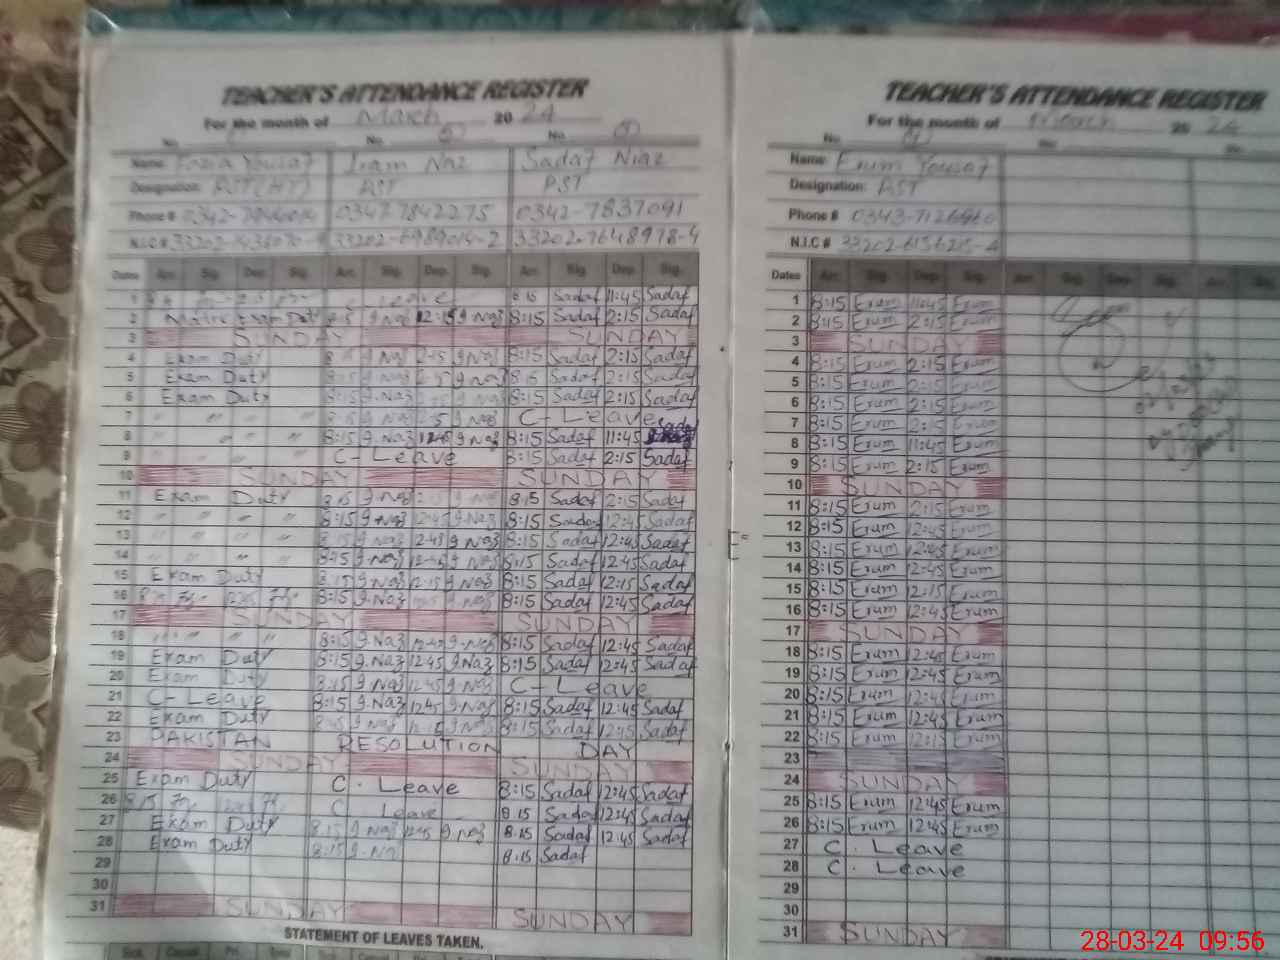 TEACHER'S ATTENDANCE REGISTER
For the month of March 2024
No. No. No.
Name: Fozia Yousaf Iram Naz Sadaf Niaz
Designation: PST(HT) PST PST
Phone # 0347-7842275 0342-7837091
N.I.C # 33202-6989014-2 33202-7648978-4
Dates Arr. Sig. Dep. Sig. Arr. Sig. Dep. Sig. Arr. Sig. Dep. Sig.
1 Leave 8:15 Sadaf 11:45 Sadaf
2 Exam Duty 12:15 9.Naz 8:15 Sadaf 2:15 Sadaf
3 SUNDAY SUNDAY
4 Exam Duty 9.Naz 9.Naz 8:15 Sadaf 2:15 Sadaf
5 Exam Duty 9.Naz 9.Naz 8:15 Sadaf 2:15 Sadaf
6 Exam Duty 9.Naz 9.Naz 8:15 Sadaf 2:15 Sadaf
7 " " " " 8:15 9.Naz 9.Naz C-Leave
8 " " " " 8:15 9.Naz 9.Naz 8:15 Sadaf 11:45 Sadaf
9 " " " " C-Leave 8:15 Sadaf 2:15 Sadaf
10 SUNDAY SUNDAY
11 Exam Duty 8:15 9.Naz 9.Naz 8:15 Sadaf 2:15 Sadaf
12 " " " " 8:15 9.Naz 12:45 9.Naz 8:15 Sadaf 12:45 Sadaf
13 " " " " 8:15 9.Naz 12:45 9.Naz 8:15 Sadaf 12:45 Sadaf
14 " " " " 8:15 9.Naz 12:45 9.Naz 8:15 Sadaf 12:45 Sadaf
15 Exam Duty 8:15 9.Naz 12:15 9.Naz 8:15 Sadaf 12:15 Sadaf
16 8:15 9.Naz 9.Naz 8:15 Sadaf 12:45 Sadaf
17 SUNDAY SUNDAY
18 " " " " 8:15 9.Naz 12:45 9.Naz 8:15 Sadaf 12:45 Sadaf
19 Exam Duty 8:15 9.Naz 12:45 9.Naz 8:15 Sadaf 12:45 Sadaf
20 Exam Duty 8:15 9.Naz 12:45 9.Naz C-Leave
21 C-Leave 8:15 9.Naz 12:45 9.Naz 8:15 Sadaf 12:45 Sadaf
22 Exam Duty 8:15 9.Naz 12:15 9.Naz 8:15 Sadaf 12:15 Sadaf
23 PAKISTAN RESOLUTION DAY
24 SUNDAY SUNDAY
25 Exam Duty C. Leave 8:15 Sadaf 12:45 Sadaf
26 8:15 C Leave 8:15 Sadaf 12:45 Sadaf
27 Exam Duty 8:15 9.Naz 12:45 9.Naz 8:15 Sadaf 12:45 Sadaf
28 Exam Duty 8:15 9.Naz 8:15 Sadaf
29
30
31 SUNDAY SUNDAY
STATEMENT OF LEAVES TAKEN.
TEACHER'S ATTENDANCE REGISTER
For the month of March 2024
No. No. No.
Name: Erum Yousaf
Designation: PST
Phone # 0343-7126960
N.I.C # 33202-6156215-4
Dates Arr. Sig. Dep. Sig. Arr. Sig. Dep. Sig. Arr. Sig.
1 8:15 Erum 11:45 Erum
2 8:15 Erum 2:15 Erum
3 SUNDAY
4 8:15 Erum 2:15 Erum
5 8:15 Erum 2:15 Erum
6 8:15 Erum 2:15 Erum
7 8:15 Erum 2:15 Erum
8 8:15 Erum 11:45 Erum
9 8:15 Erum 2:15 Erum
10 SUNDAY
11 8:15 Erum 2:15 Erum
12 8:15 Erum 12:45 Erum
13 8:15 Erum 12:45 Erum
14 8:15 Erum 12:45 Erum
15 8:15 Erum 12:15 Erum
16 8:15 Erum 12:45 Erum
17 SUNDAY
18 8:15 Erum 12:45 Erum
19 8:15 Erum 12:45 Erum
20 8:15 Erum 12:45 Erum
21 8:15 Erum 12:45 Erum
22 8:15 Erum 12:15 Erum
23
24 SUNDAY
25 8:15 Erum 12:45 Erum
26 8:15 Erum 12:45 Erum
27 C. Leave
28 C. Leave
29
30
31 SUNDAY
28-03-24 09:56